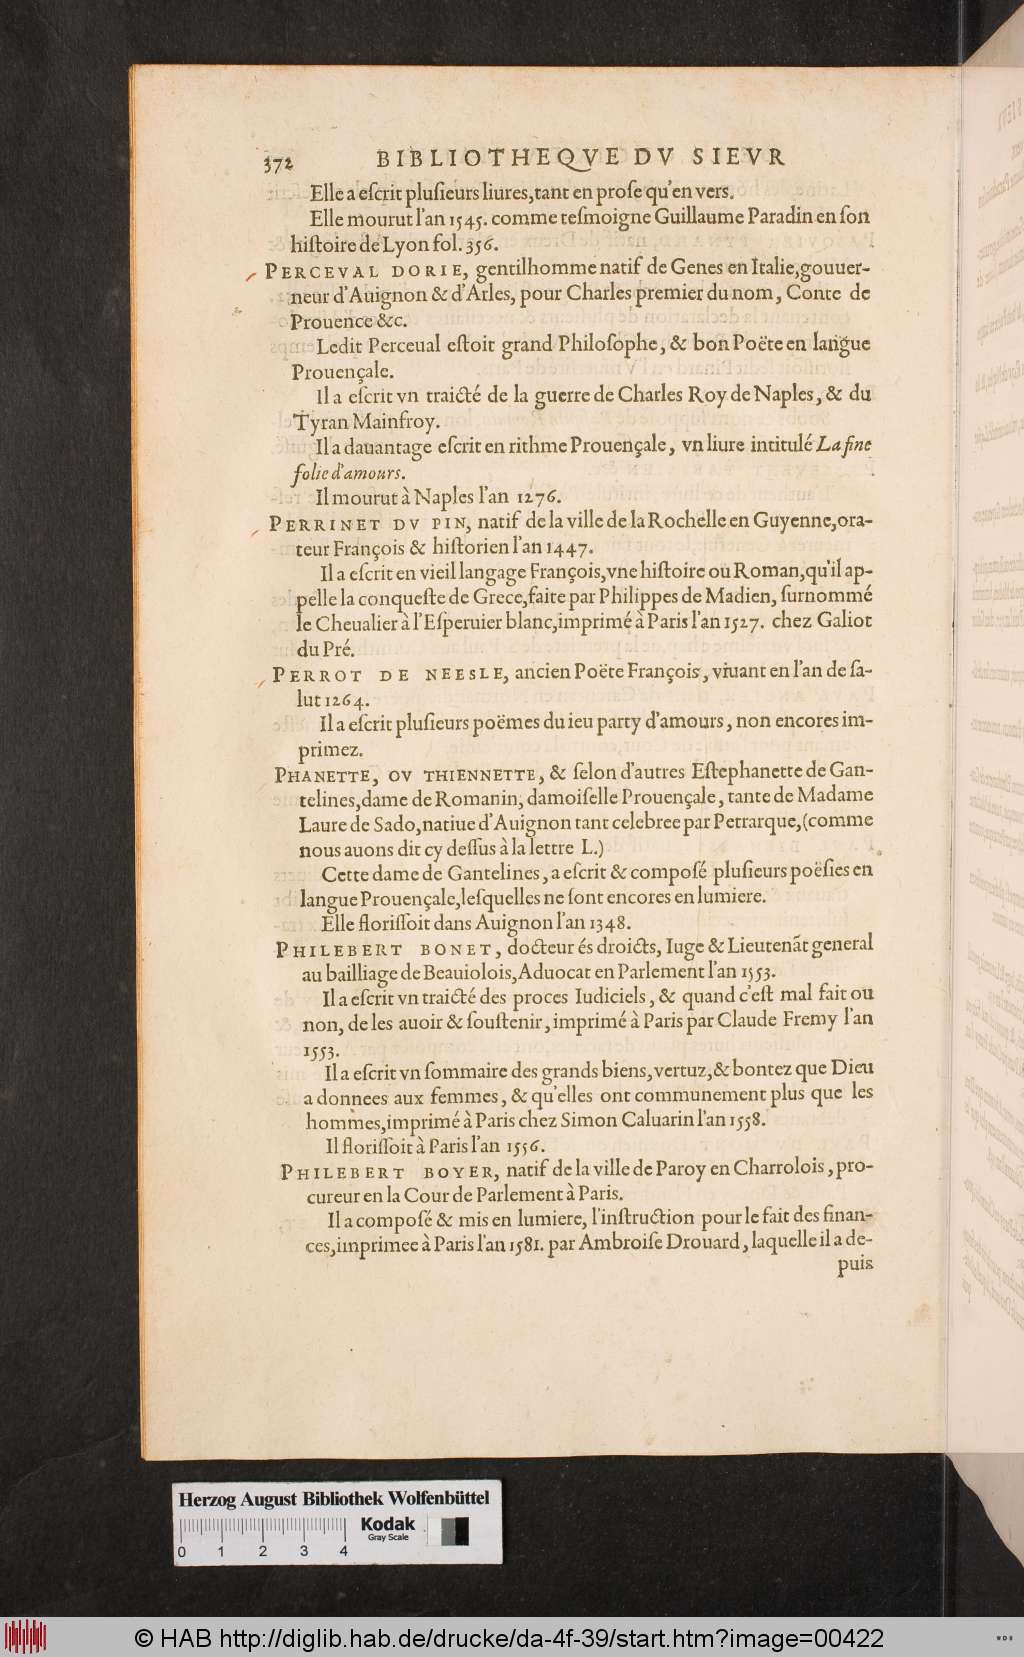 372 BIBLIOTHEQVE DV SIEVR
Elle a eſcrit pluſieurs liures, tant en proſe qu'en vers.
Elle mourut l'an 1545. comme teſmoigne Guillaume Paradin en ſon
hiſtoire de Lyon fol. 356.
PERCEVAL DORIE, gentilhomme natif de Genes en Italie, gouuer-
neur d'Auignon & d'Arles, pour Charles premier du nom, Conte de
Prouence &c.
Ledit Perceual eſtoit grand Philoſophe, & bon Poëte en langue
Prouençale.
Il a eſcrit vn traicté de la guerre de Charles Roy de Naples, & du
Tyran Mainfroy.
Il a dauantage eſcrit en rithme Prouençale, vn liure intitulé La fine
folie d'amours.
Il mourut à Naples l'an 1276.
PERRINET DV PIN, natif de la ville de la Rochelle en Guyenne, ora-
teur François & hiſtorien l'an 1447.
Il a eſcrit en vieil langage François, vne hiſtoire ou Roman, qu'il ap-
pelle la conqueſte de Grece, faite par Philippes de Madien, ſurnommé
le Cheualier à l'Eſperuier blanc, imprimé à Paris l'an 1527. chez Galiot
du Pré.
PERROT DE NEESLE, ancien Poëte François, viuant en l'an de ſa-
lut 1264.
Il a eſcrit pluſieurs poëmes du ieu party d'amours, non encores im-
primez.
PHANETTE, OV THIENNETTE, & ſelon d'autres Eſtephanette de Gan-
telines, dame de Romanin, damoiſelle Prouençale, tante de Madame
Laure de Sado, natiue d'Auignon tant celebree par Petrarque, (comme
nous auons dit cy deſſus à la lettre L.)
Cette dame de Gantelines, a eſcrit & compoſé pluſieurs poëſies en
langue Prouençale, leſquelles ne ſont encores en lumiere.
Elle floriſſoit dans Auignon l'an 1348.
PHILEBERT BONET, docteur és droicts, Iuge & Lieutenãt general
au bailliage de Beauiolois, Aduocat en Parlement l'an 1553.
Il a eſcrit vn traicté des proces Iudiciels, & quand c'eſt mal fait ou
non, de les auoir & ſouſtenir, imprimé à Paris par Claude Fremy l'an
1553.
Il a eſcrit vn ſommaire des grands biens, vertuz, & bontez que Dieu
a donnees aux femmes, & qu'elles ont communement plus que les
hommes, imprimé à Paris chez Simon Caluarin l'an 1558.
Il floriſſoit à Paris l'an 1556.
PHILEBERT BOYER, natif de la ville de Paroy en Charrolois, pro-
cureur en la Cour de Parlement à Paris.
Il a compoſé & mis en lumiere, l'inſtruction pour le fait des finan-
ces, imprimee à Paris l'an 1581. par Ambroiſe Drouard, laquelle il a de-
puis
Herzog August Bibliothek Wolfenbüttel
Kodak
Gray Scale
0 1 2 3 4
© HAB http://diglib.hab.de/drucke/da-4f-39/start.htm?image=00422